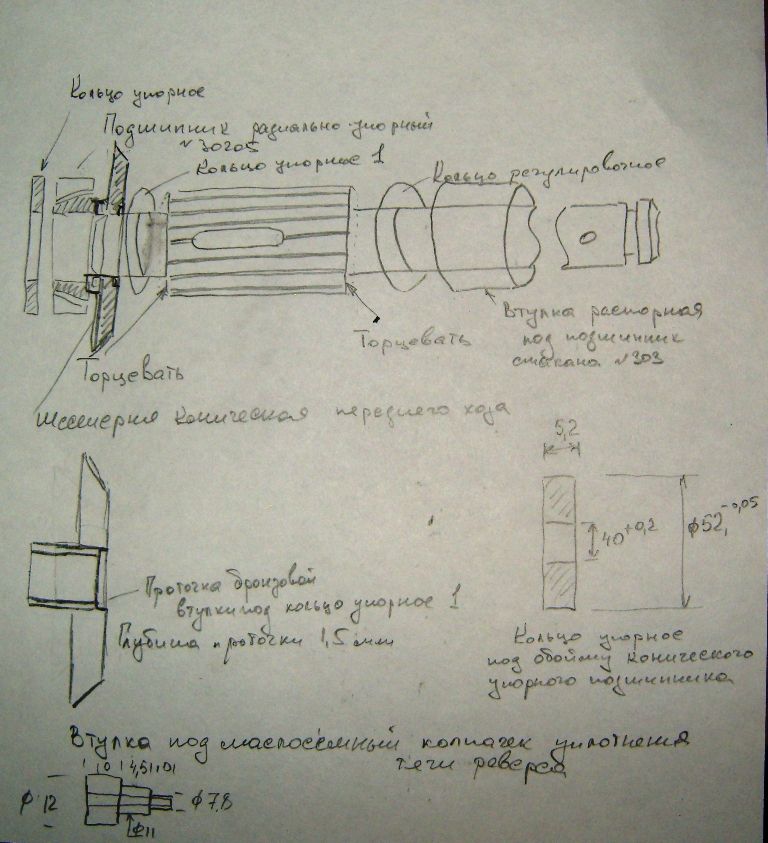 Кольцо упорное
Подшипник радиально-упорный
№ 30205
Кольцо упорное 1
Кольцо регулировочное
Втулка распорная
под подшипник
стакана №303
Торцевать
Торцевать
Шестерня коническая переднего хода
5,2
40+0,2
ϕ52,-0,05
Проточка бронзовой
втулки под кольцо упорное 1
Глубина проточки 1,5 мм
Кольцо упорное
под обойму конического
упорного подшипника
Втулка под маслосъёмный колпачек уплотнения
течи реверса
ϕ 12
10
ϕ 7,8
ϕ11